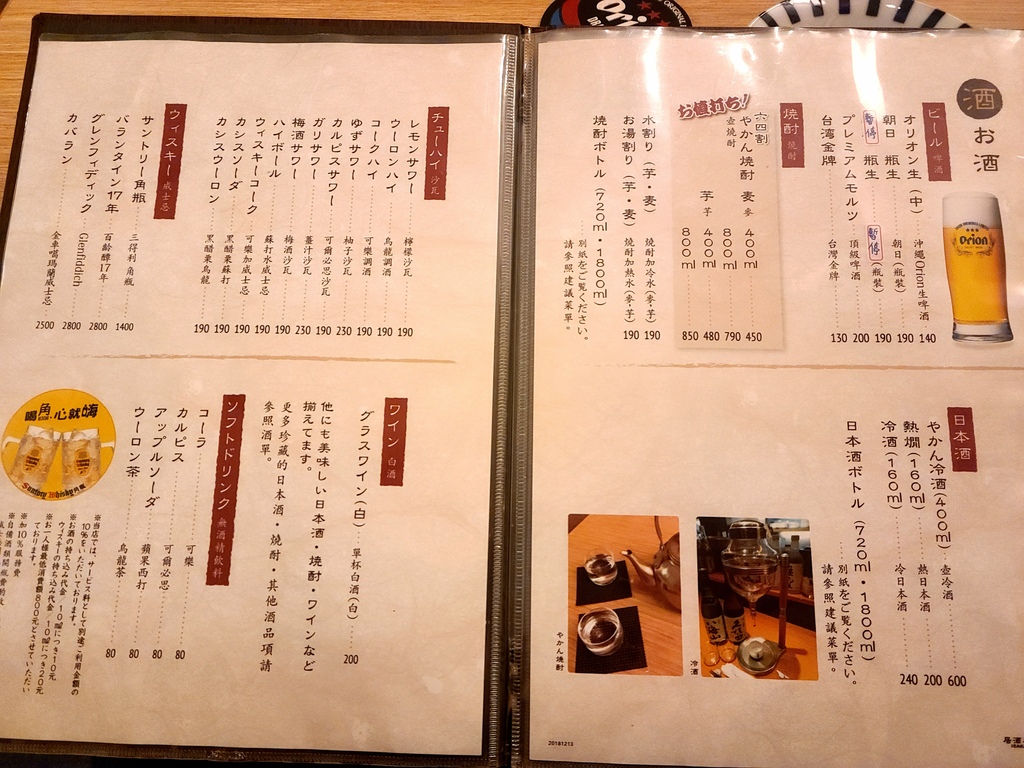 酒 お酒
ビール 啤酒
オリオン生(中) 沖繩Orion生啤酒 140
朝日 瓶生 朝日(瓶裝) 190
暫停 瓶生 暫停(瓶裝) 190
プレミアムモルツ 頂級啤酒 200
台湾金牌 台灣金牌 130
焼酎 燒酎
お値打ち!
六四割
やかん焼酎 麦 400ml 450
壺燒酎 麥 800ml 790
芋 400ml 480
芋 800ml 850
水割り(芋・麦) 燒酎加冷水(麥・芋) 190
お湯割り(芋・麦) 燒酎加熱水(麥・芋) 190
焼酎ボトル(720ml・1800ml)
別紙をご覧ください。
請參照建議菜單。
日本酒
やかん冷酒(400ml) 壺冷酒 600
熱燗(160ml) 熱日本酒 200
冷酒(160ml) 冷日本酒 240
日本酒ボトル(720ml・1800ml)
別紙をご覧ください。
請參照建議菜單。
冷酒
やかん焼酎
20181213
チューハイ 沙瓦
レモンサワー 檸檬沙瓦 190
ウーロンハイ 烏龍調酒 190
コークハイ 可樂調酒 190
ゆずサワー 柚子沙瓦 230
カルピスサワー 可爾必思沙瓦 190
ガリサワー 薑汁沙瓦 230
梅酒サワー 梅酒沙瓦 190
ハイボール 蘇打水威士忌 190
ウィスキーコーク 可樂加威士忌 190
カシスソーダ 黑醋栗蘇打 190
カシスウーロン 黑醋栗烏龍 190
ウィスキー 威士忌
サントリー角瓶 三得利 角瓶 1400
バランタイン17年 百齡醇17年 2800
グレンフィディック Glenfiddich 2800
カバラン 金車噶瑪蘭威士忌 2500
ワイン 白酒
グラスワイン(白) 單杯白酒(白) 200
他にも美味しい日本酒・焼酎・ワインなど
揃えてます。
更多珍藏的日本酒・燒酎・其他酒品項請
參照酒單。
ソフトドリンク 無酒精飲料
コーラ 可樂 80
カルピス 可爾必思 80
アップルソーダ 蘋果西打 80
ウーロン茶 烏龍茶 80
喝角心就嗨
Suntory Whisky 角瓶
※当店では、サービス料として別途ご利用金額の
10%をいただいております。
※お酒の持ち込み代金 10㎖につき10元
ウィスキーの持ち込み代金 10㎖につき20元
※お一人様最低消費額800元とさせていただい
ております。
※加10%服務費
Orion
Orion